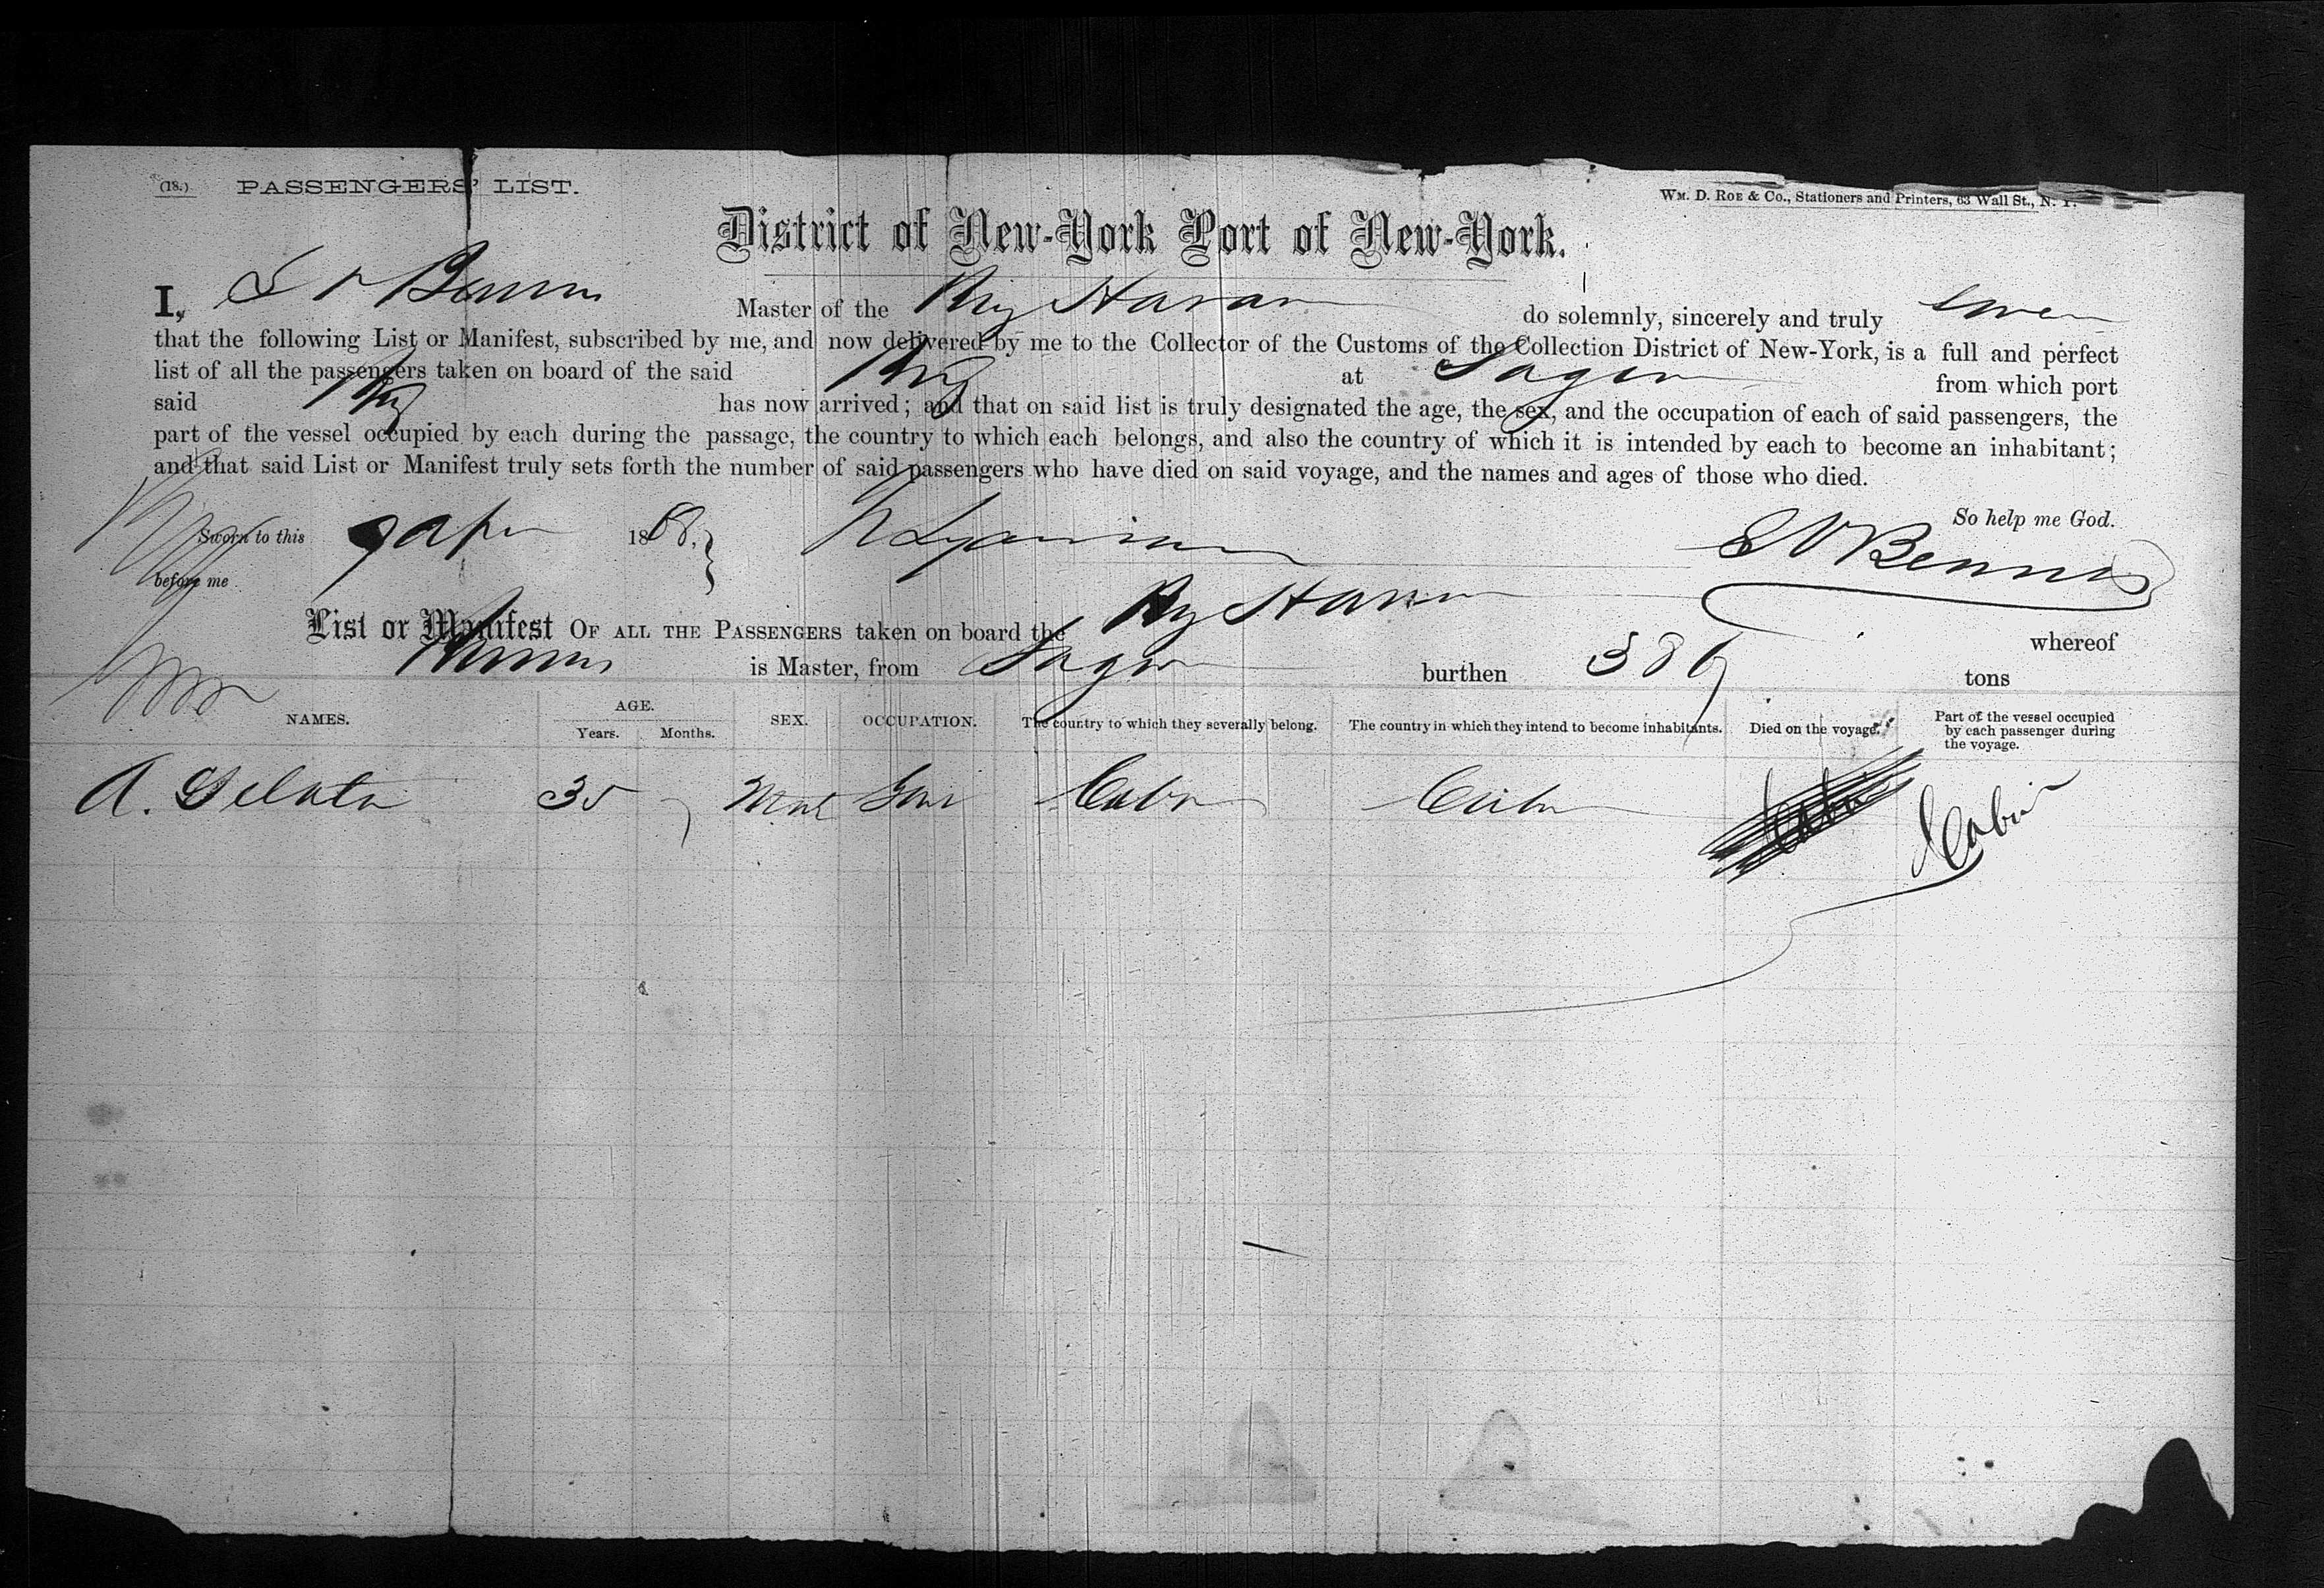 (18.) PASSENGERS' LIST.
WM. D. ROE & Co., Stationers and Printers, 63 Wall St., N. Y.
District of New-York Port of New-York.
I, Master of the Brig Havana do solemnly, sincerely and truly swear
that the following List or Manifest, subscribed by me, and now delivered by me to the Collector of the Customs of the Collection District of New-York, is a full and perfect
list of all the passengers taken on board of the said Brig at Sagua from which port
said Brig has now arrived; and that on said list is truly designated the age, the sex, and the occupation of each of said passengers, the
part of the vessel occupied by each during the passage, the country to which each belongs, and also the country of which it is intended by each to become an inhabitant;
and that said List or Manifest truly sets forth the number of said passengers who have died on said voyage, and the names and ages of those who died.
So help me God.
Sworn to this 1868.
before me
List or Manifest OF ALL THE PASSENGERS taken on board the Brig Havana whereof
is Master, from Sagua burthen tons
NAMES. AGE. Years. Months. SEX. OCCUPATION. The country to which they severally belong. The country in which they intend to become inhabitants. Died on the voyage. Part of the vessel occupied by each passenger during the voyage.
A. 35 Male Cuba Cuba Cabin